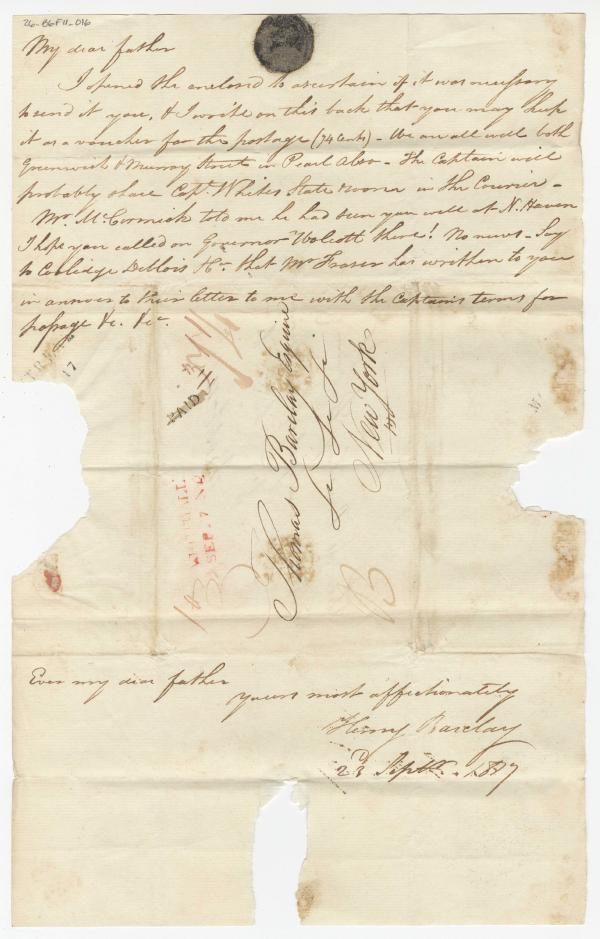 26-B6F11-016
My dear father
I opened the enclosed to ascertain if it was necessary
to send it you, & I write on this back that you may keep
it as a voucher for the postage (74 Cents) - We are all well both
Greenwich & Murray Streets in Pearl Also - The Captain will
probably share Capt Whites State room in the Courier -
Mr. McCormick told me he had seen you well at N. Haven
I hope you called on Governor Wolcott there! No news - Say
to Coolidge Deblois & Co that Mr Fraser has written to you
in answer to their letter to me with the Captains terms for
passage &c. &c.
17
PAID
SEP. 7
Thomas Barclay Esquire
&c &c &c
New York
Ever my dear father
yours most affectionately
Henry Barclay
23d Septr. 1817